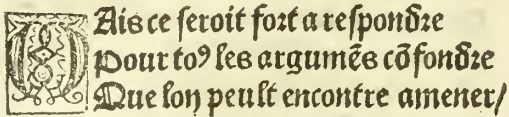 MAis ce seroit fort a respondre
Pour to⁹ les argumẽs cõfondre
Que lon peult encontre amener/